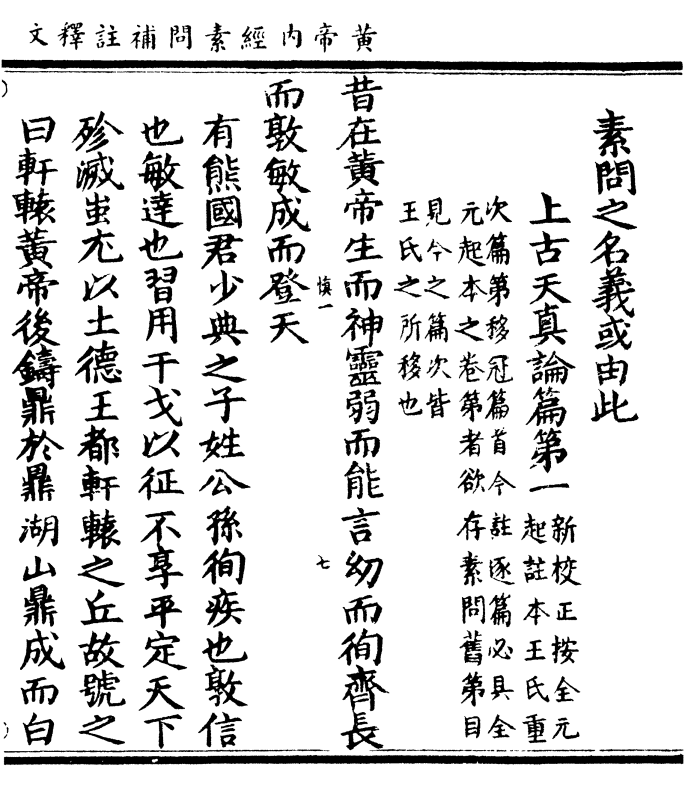 黄帝內經素問補註釋文
素問之名義或由此
上古天真論篇第一
新校正按全元
起註本王氏重
次篇第移冠篇首今註逐篇必具全
元起本之卷第者欲存素問舊第目
見今之篇次皆
王氏之所移也
昔在黃帝生而神靈弱而能言幼而徇齊長
慎一
七
而敦敏成而登天
有熊國君少典之子姓公孫徇疾也敦信
也敏達也習用干戈以征不享平定天下
殄滅蚩尤以土德王都軒轅之丘故號之
曰軒轅黃帝後鑄鼎於鼎湖山鼎成而白